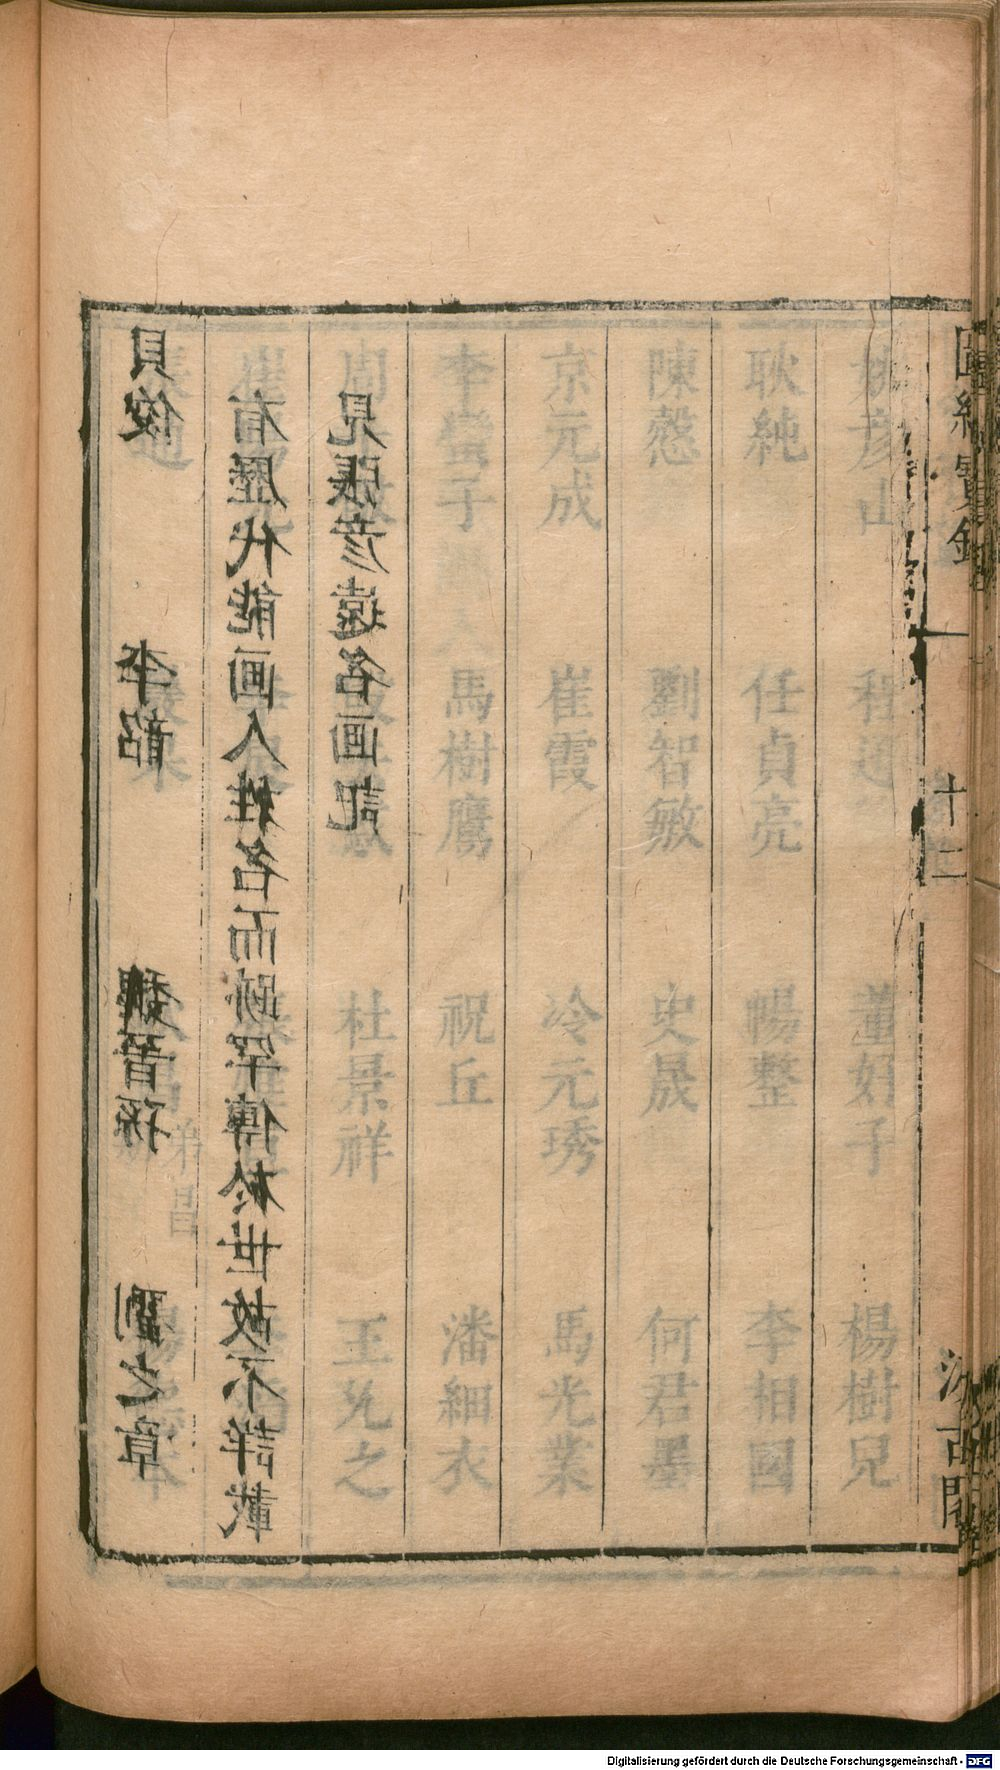 圖繪寶鑑 十二 汲古閣
貝俊 李韶 魏晉孫 劉之章
有歷代能画人姓名而跡罕傳於世故不詳載
見張彥遠名画記
姚彥山 程遜 董好子 楊樹兒
耿純 任貞亮 暢整 李相國
陳慤 劉智敏 史晟 何君墨
京元成 崔霞 冷元琇 馬光業
李蠻子 馬樹鷹 祝丘 潘細衣
杜景祥 王允之
Digitalisierung gefördert durch die Deutsche Forschungsgemeinschaft - DFG